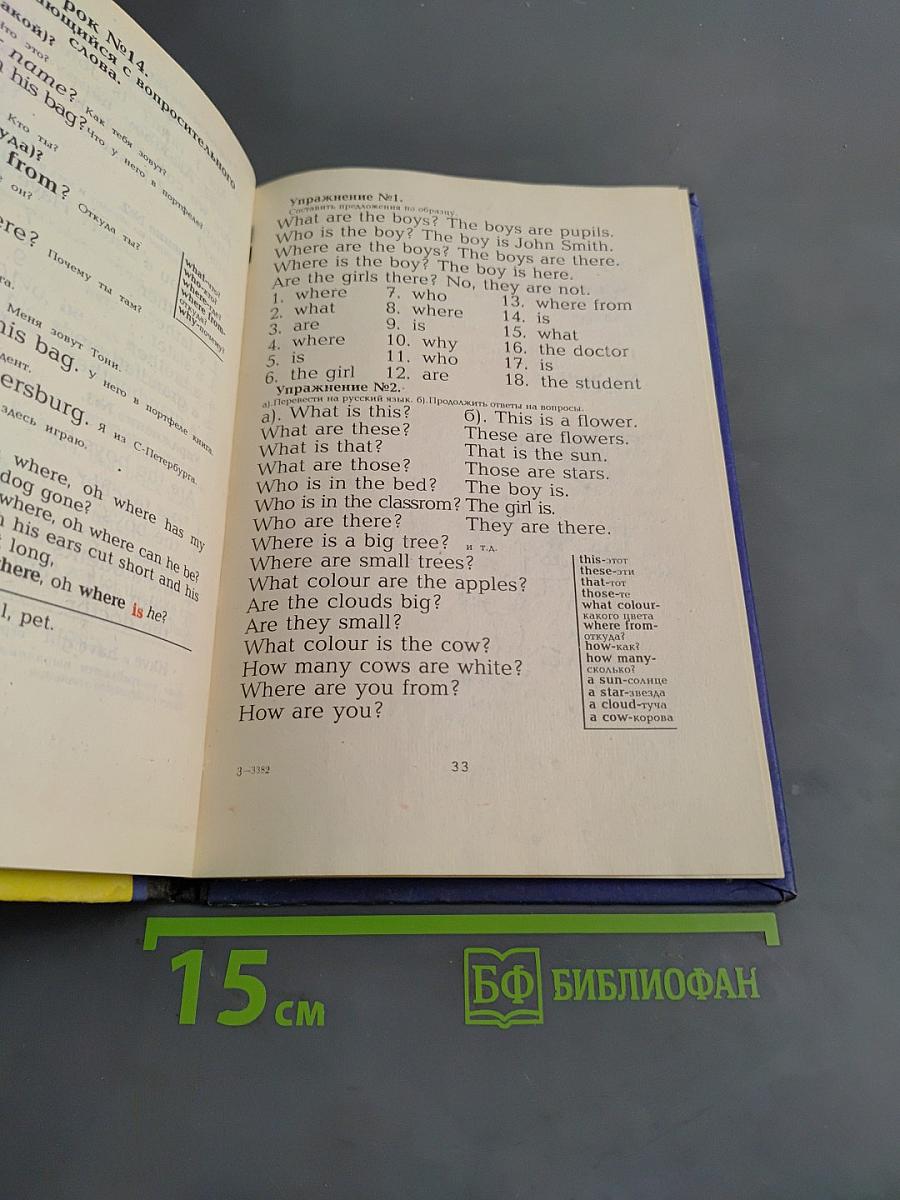 рок №14.
ающийся с вопросительного
слова.
акой)?
что это?
name? Как тебя зовут?
his bag? Что у него в портфеле?
Кто ты?
уда)?
from? Откуда ты?
он?
ere? Почему ты там?
what-что
who-кто
where-где
where from-
откуда?
why-почему?
Меня зовут Тони.
his bag. У него в портфеле книга.
дент.
ersburg. Я из С-Петербурга.
здесь играю.
where, oh where has my
dog gone?
where, oh where can he be?
his ears cut short and his
long,
here, oh where is he?
l, pet.
Упражнение №1.
Составить предложения по образцу.
What are the boys? The boys are pupils.
Who is the boy? The boy is John Smith.
Where are the boys? The boys are there.
Where is the boy? The boy is here.
Are the girls there? No, they are not.
1. where 7. who 13. where from
2. what 8. where 14. is
3. are 9. is 15. what
4. where 10. why 16. the doctor
5. is 11. who 17. is
6. the girl 12. are 18. the student
Упражнение №2.
а).Перевести на русский язык. б).Продолжить ответы на вопросы.
а). What is this? б). This is a flower.
What are these? These are flowers.
What is that? That is the sun.
What are those? Those are stars.
Who is in the bed? The boy is.
Who is in the classrom? The girl is.
Who are there? They are there.
Where is a big tree? и т.д.
Where are small trees?
What colour are the apples?
Are the clouds big?
Are they small?
What colour is the cow?
How many cows are white?
Where are you from?
How are you?
this-этот
these-эти
that-тот
those-те
what colour-
какого цвета
where from-
откуда?
how-как?
how many-
сколько?
a sun-солнце
a star-звезда
a cloud-туча
a cow-корова
3—3382 33
15 см
БФ БИБЛИОФАН